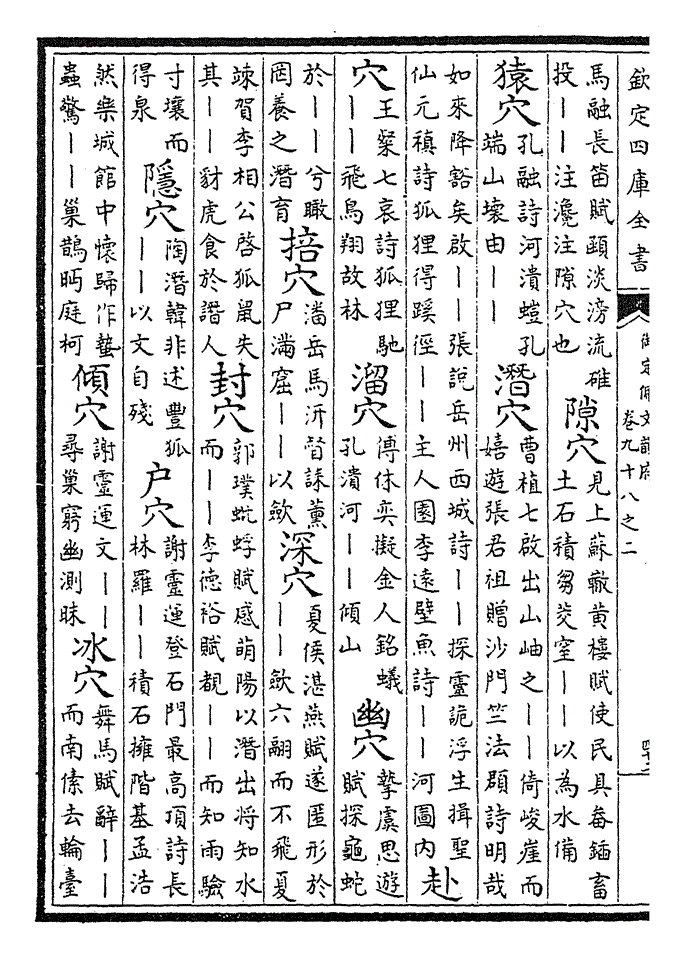 欽定四庫全書
御定佩文韻府
卷九十八之二
馬融長笛賦頲淡滂流碓
投――注瀺注隙穴也
隙穴
見上蘇轍黄樓賦使民具畚鍤畜
土石積芻茭窒――以為水備
猿穴
孔融詩河潰螘孔
端山壞由――
潛穴
曹植七啟出山岫之――倚峻崖而
嬉遊張君祖贈沙門竺法頵詩明哉
如來降豁矣啟――張説岳州西城詩――探靈詭浮生揖聖
仙元稹詩狐狸得蹊徑――主人園李遠壁魚詩――河圖内
赴穴
王粲七哀詩狐狸馳
――飛鳥翔故林
溜穴
傅休奕擬金人銘蟻
孔潰河――傾山
幽穴
摯虞思遊
賦探龜蛇
於――兮瞰
罔養之潛育
掊穴
潘岳馬汧督誄薰
尸滿窟――以斂
深穴
夏侯湛燕賦遂匿形於
――歛六翮而不飛夏
竦賀李相公啓狐鼠失
其――豺虎食於譖人
封穴
郭璞蚍蜉賦感萌陽以潛出将知水
而――李德裕賦覩――而知雨驗
寸壤而
得泉
隱穴
陶潛韓非述豐狐
――以文自殘
户穴
謝靈運登石門最高頂詩長
林羅――積石擁階基孟浩
然樂城館中懷歸作蟄
蟲驚――巢鵲眄庭柯
傾穴
謝靈運文――
尋巢窮幽測昧
冰穴
舞馬賦辭――
而南傃去輪臺